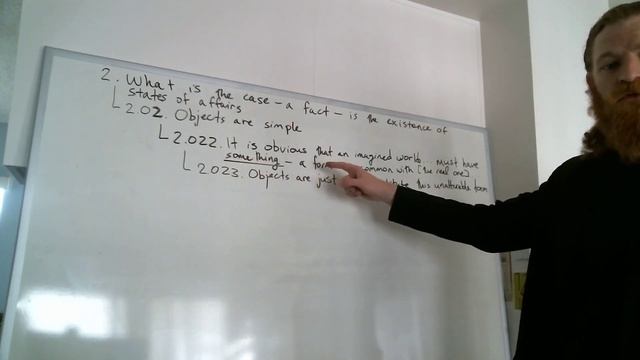 2. What is the case - a fact - is the existence of
states of affairs
2.02. Objects are simple
2.022. It is obvious that an imagined world must have
something - a form common with [the real one]
2023. Objects are just this unalterable form